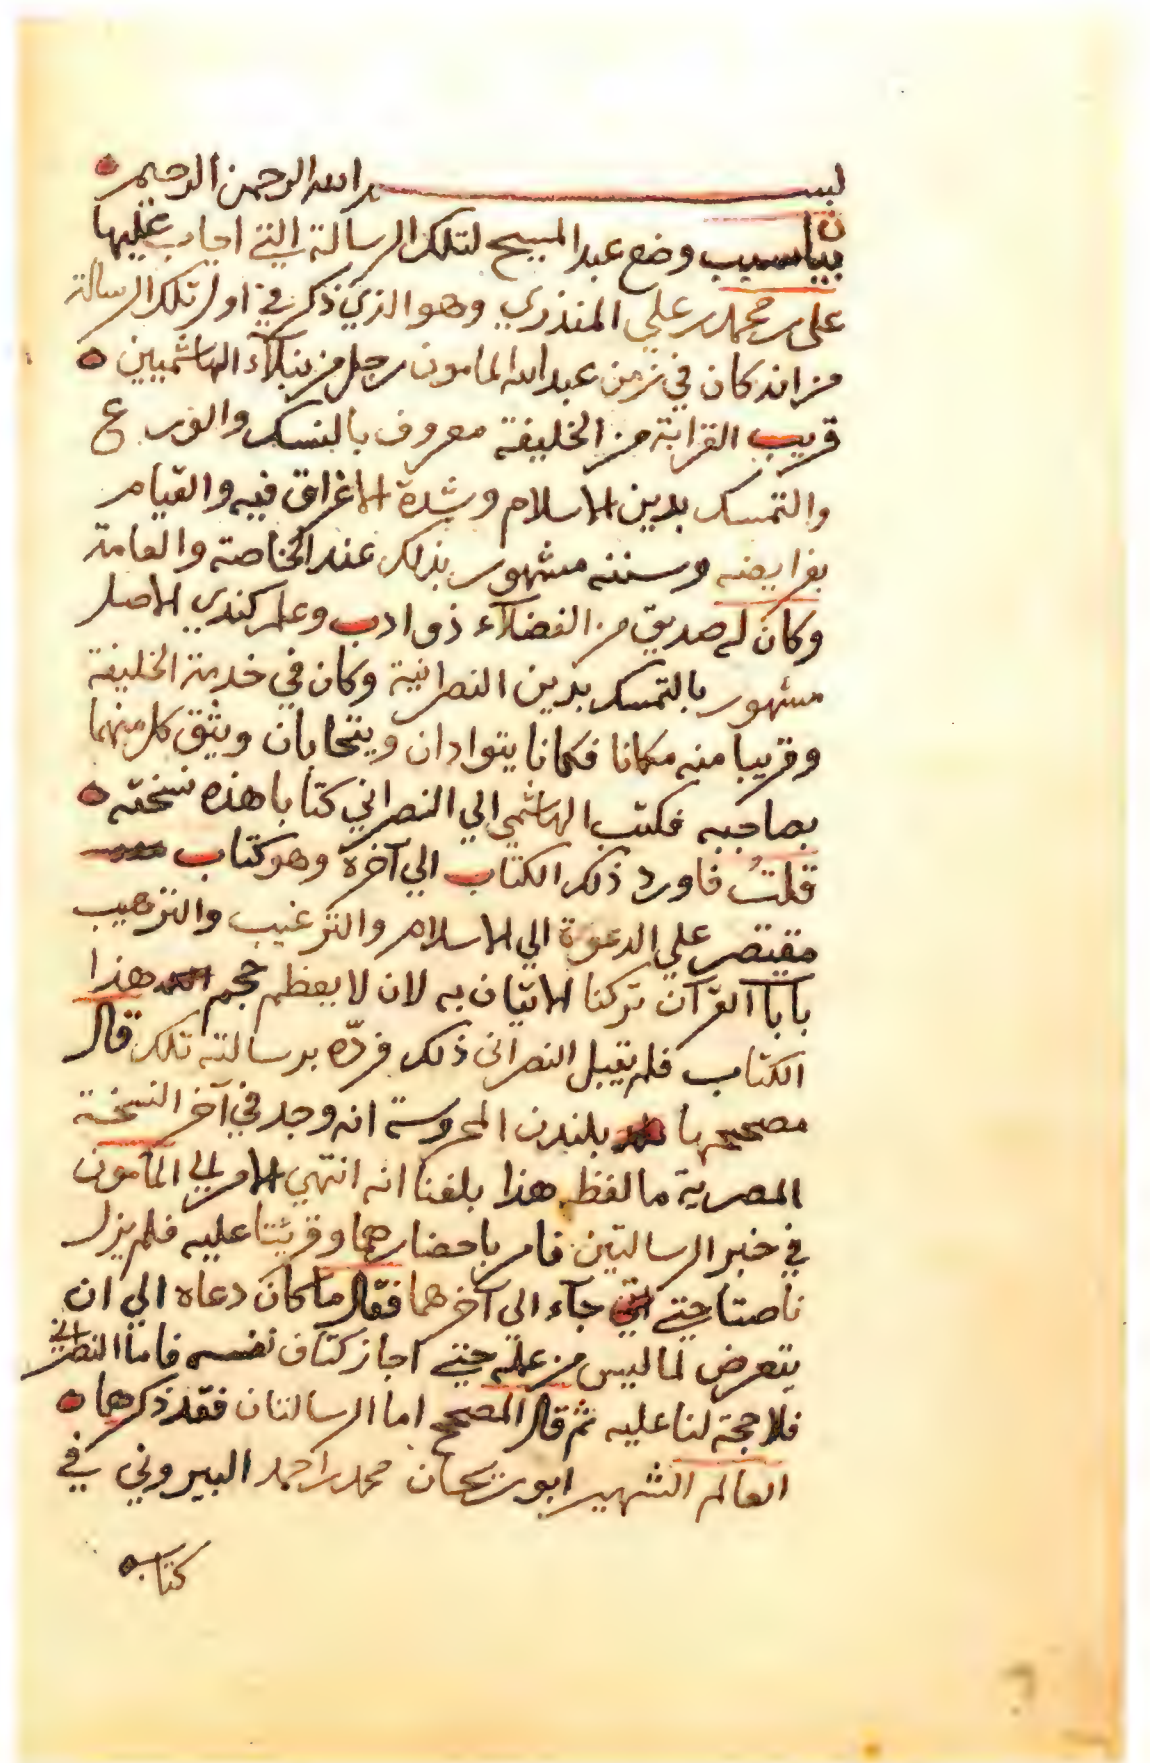 بسم الله الرحمن الرحيم
بيان سبب وضع عبد المسيح لتلك الرسالة التي اجاب عليها
علي بن محمد بن علي المنذري وهو الذي ذكر في اول تلك الرسالة
من انه كان في زمن عبد الله المامون رجل من نبلآء الهاشميين
قريب القرابة من الخليفة معروف بالنسك والورع
والتمسك بدين الاسلام وشدة الاغراق فيه والقيام
بفرايضه وسننه مشهور بذلك عند الخاصة والعامة
وكان له صديق من الفضلآء ذو ادب وعلم كندي الاصل
مشهور بالتمسك بدين النصرانية وكان في خدمة الخليفة
وقريبا منه مكانا فكانا يتوادان ويتحابان ويثق كل منهما
بصاحبه فكتب الهاشمي الي النصراني كتابا هذه نسخته
قلتُ فاورد ذلك الكتاب الي آخره وهو كتاب
مقتصر علي الدعوة الي الاسلام والترغيب والترهيب
بآيات القرآن تركنا الاتيان به لان لا يعظم حجم هذا
الكتاب فلم يقبل النصراني ذلك فردّه برسالته تلك قال
مصححها بلندن المحروسة انه وجد في آخر النسخة
المصرية ما لفظه هذا بلغنا انه انتهي الامر الي المآمون
في خبر الرسالتين فامر باحضارهما وقريئتا عليه فلم يزل
ناصتا حتي جآء الي آخرهما فقال ما كان دعاه الي ان
يتعرض لما ليس من عمله حتي اجاز كتاف نفسه فاما النصراني
فلا حجة لنا عليه ثم قال المصحح اما الرسالتان فقد ذكرهما
العالم الشهير ابو ريحان محمد بن احمد البيروني في
كتابه